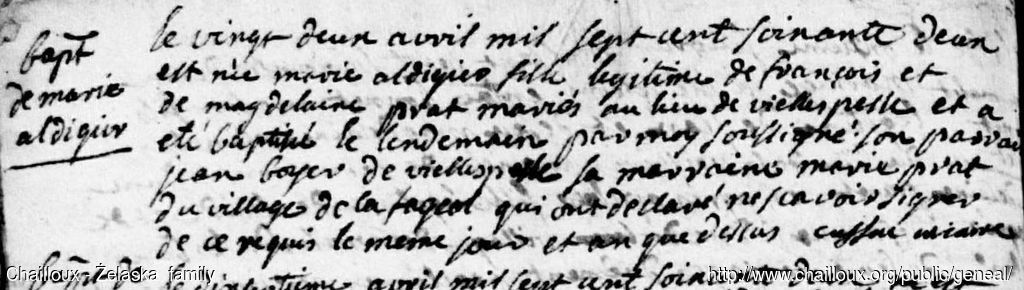 bapt
de marie
aldigier
le vingt deux avril mil sept cent soixante deux
est née marie aldigier fille legitime de françois et
de magdelaine prat mariés au lieu de viellespesse et a
eté baptisé le lendemain par moy soussigné son parrai
jean boyer de viellespesse sa marraine marie prat
du village de la fageol qui ont declaré ne scavoir signer
de ce requis le meme jour et an que dessus cussac vicaire
avril mil sept cent soixante deux
Chailloux-Żelaska family
http://www.chailloux.org/public/geneal/